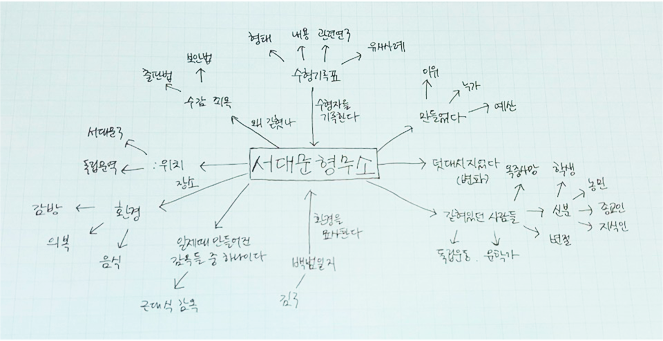 형태
내용
관련연구
유사사례
보안법
출판법
수형기록표
이유
누가
수감 죄목
왜 갇혔나
수형자를
기록한다
만들었다
예산
서대문구
독립문역
:위치
장소
서대문형무소
덧대서지었다
(변화)
옥중사망
학생
농민
감방
환경
의복
음식
일제때 만들어진
감옥들 중 하나이다
근대식 감옥
환경을
묘사한다
백범일지
김구
갇혀있던 사람들
신분
종교인
지식인
변절
독립운동
음악가